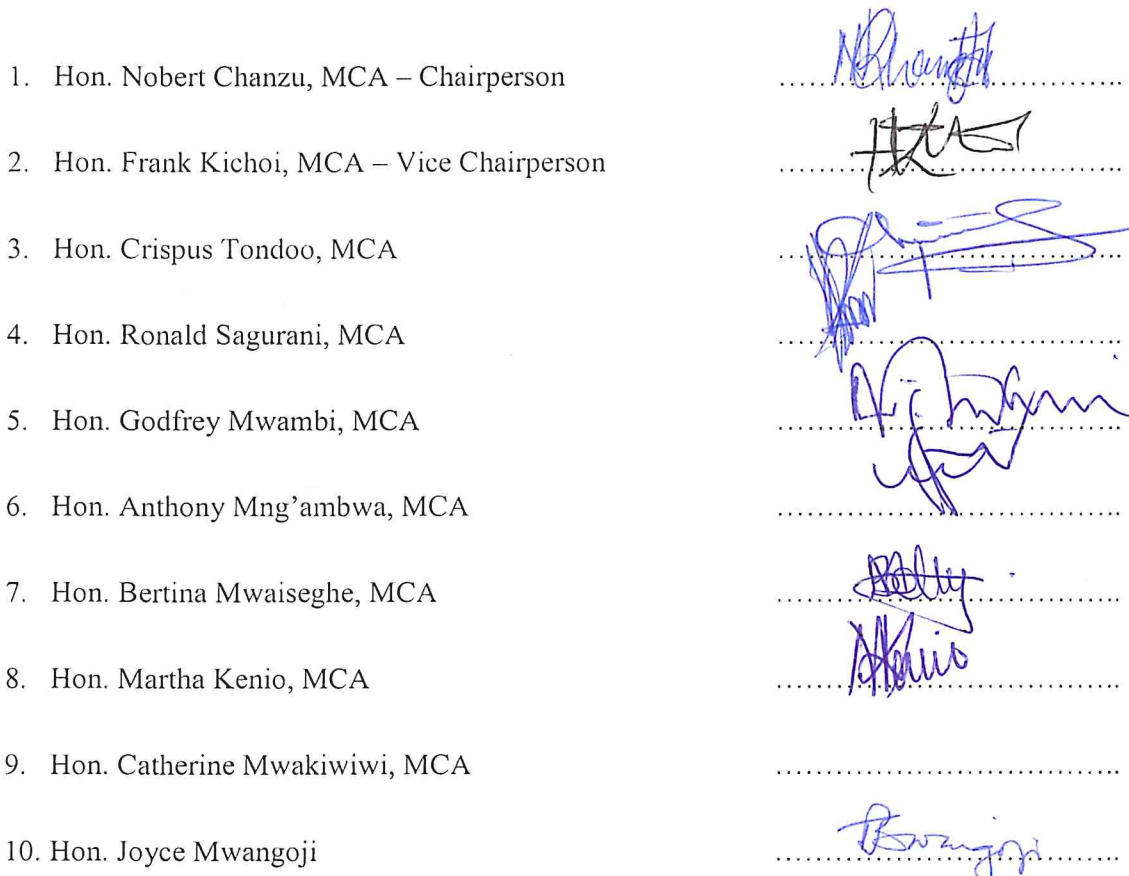 1. Hon. Nobert Chanzu, MCA – Chairperson ....................................
2. Hon. Frank Kichoi, MCA – Vice Chairperson ....................................
3. Hon. Crispus Tondoo, MCA ....................................
4. Hon. Ronald Sagurani, MCA ....................................
5. Hon. Godfrey Mwambi, MCA ....................................
6. Hon. Anthony Mng’ambwa, MCA ....................................
7. Hon. Bertina Mwaiseghe, MCA ....................................
8. Hon. Martha Kenio, MCA ....................................
9. Hon. Catherine Mwakiwiwi, MCA ....................................
10. Hon. Joyce Mwangoji ....................................